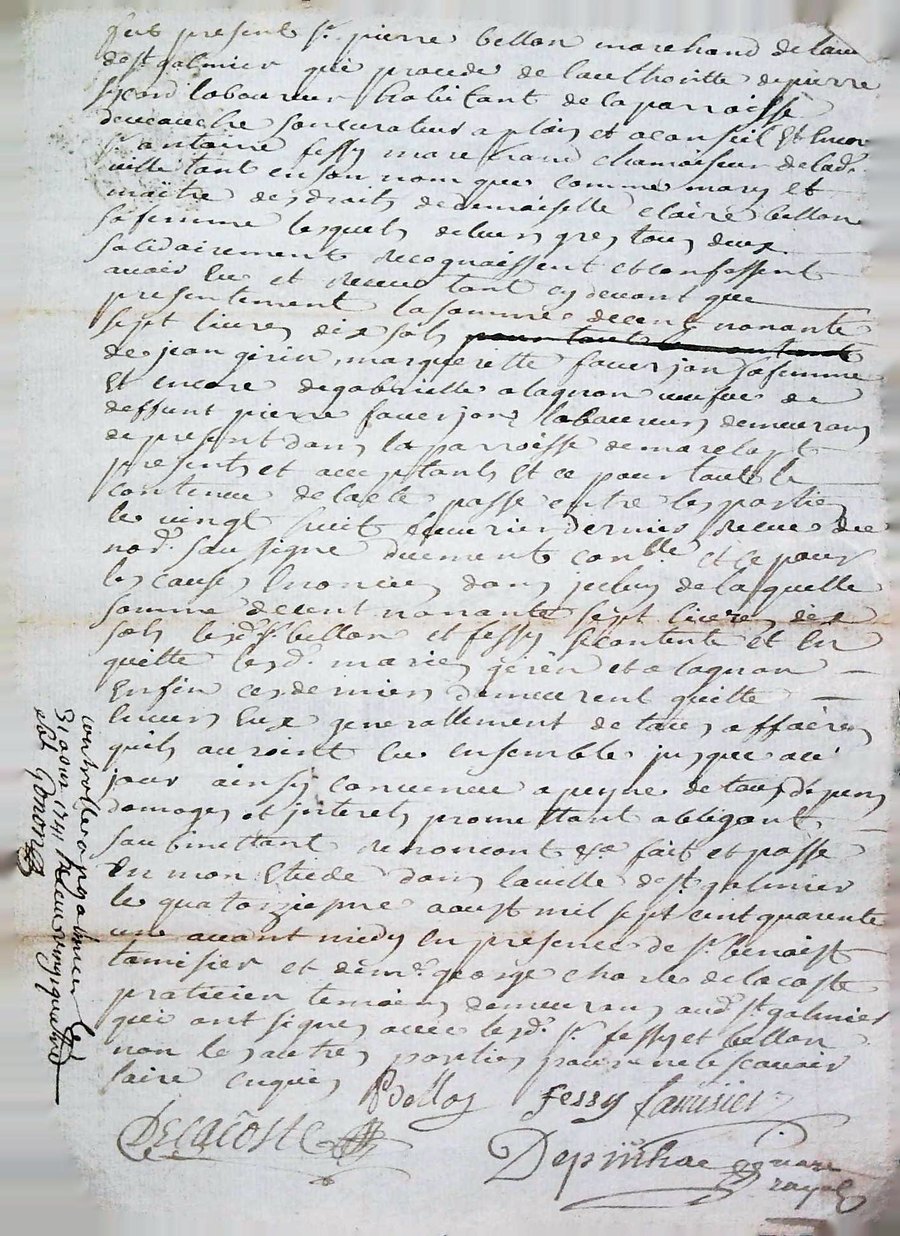 fut present sr. pierre bellon marchand de la ville
de st galmier qui procede de lauthoritte de pierre
laboureur habitant de la parroisse
son curateur a plais et aconseil Et encor
sr. antoine fessy marchand chamoiseur de lad.
ville tant en son nom que comme mary et
maitre des droits de demoiselle claire bellon
sa femme lesquels de leurs gres tous deux
solidairement recognoissent et confessent
avoir Eu et receu tant cy devant que
presentement la somme de cent nonante
sept livres dix sols
de jean gerin, margueritte faverjon sa femme
Et encore de gabrielle alagnon veufve de
deffunt pierre faverjon laboureur demeurans
de present dans la parroisse de
presents et acceptants Et ce pour tout le
contenu de lacte passe entre les parties
le vingt huit feuvrier dernier receu du
nore. soussigne duement conlle. et ce pour
les causes Enoncees dans jceluy de laquelle
somme de cent nonante sept livres dix
sols lesd. srs bellon et fessy se contente et En
quitte lesd. maries gerin et alagnon
Enfin ces derniers demeurent quitte
Envers Eux generallement de tous affaires
quils auroint Eu ensemble jusque au
jour ainsy convenu a peyne de tous depens
domages et jnterets promettant obligeant
soubmettant renoncont &a. fait et passe
En mon Etude dans la ville de st. galmier
le quatorzieme aoust mil sept cent quarente
une avant midy en presence de sr. benoist
tamisier et de me. george charle delacoste
praticien temoins demeurans aud. st galmier
qui ont signes avec lesd. srs. fessy et bellon
non les autres parties pour ne le scavoir
faire enquis
Bellon fessy tamisier
Delacoste
Depinhac
notaire
royal
controlle a st galmier le
31 aout 1741 Receu
sols Gonon